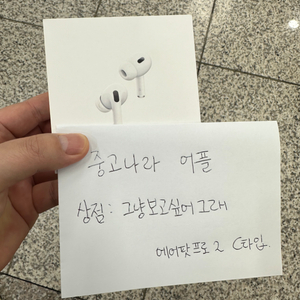 중고나라 어플
상점 : 그냥보고싶어그래
에어팟프로 2 C타입.